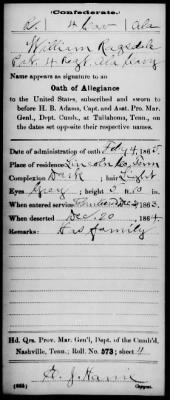 (Confederate.)
4 Cav Ala
William Ragsdale
Pvt. 4 Regt. Ala Cavy
Name appears as signature to an
Oath of Allegiance
to the United States, subscribed and sworn to
before H. B. Adams, Capt. and Asst. Pro. Mar.
Genl., Dept. Cumb., at Tullahoma, Tenn., on
the dates set opposite their respective names.
Date of administration of oath Feb 4, 1865.
Place of residence Lincoln Co. Tenn
Complexion Dark; hair Light
Eyes Grey; height 5 ft. 10 in.
When entered service Dec 1863.
When deserted Dec. 20, 1864.
Remarks: family
Hd. Qrs. Prov. Mar. Gen'l, Dept. of the Cumb'd,
Nashville, Tenn.; Roll No. 573; sheet 4
Copyist.